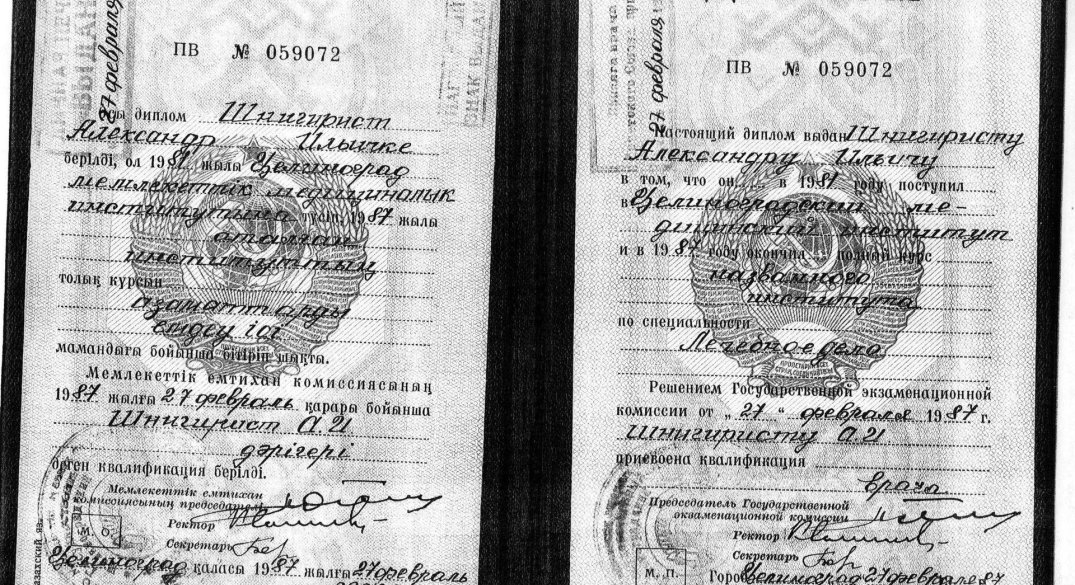 27 февраля
ПВ № 059072
диплом Шнигирист
Александр Ильичке
берілді, ол 1981 жылы Целиноград
мемлекеттік медициналық
институтына түсіп, 1987 жылы
аталған
институттың
толық курсын
азаматтарды
емдеу ісі
мамандығы бойынша бітіріп шықты.
Мемлекеттік емтихан комиссиясының
1987 жылғы 27 февраль қарары бойынша
Шнигирист А.И
дәрігері
деген квалификация берілді.
Мемлекеттік емтихан
комиссиясының председателі
Ректор
Секретарь
М. О.
Целиноград қаласы 1987 жылғы 27 февраль
27 февраля
ПВ № 059072
Настоящий диплом выдан Шнигиристу
Александру Ильичу
в том, что он в 1981 году поступил
в Целиноградский ме-
дицинский институт
и в 1987 году окончил полный курс
названного
института
по специальности
Лечебное дело
Решением Государственной экзаменационной
комиссии от „27“ февраля 1987 г.
Шнигиристу А.И
присвоена квалификация
врача
Председатель Государственной
экзаменационной комиссии
Ректор
Секретарь
М. П.
Город Целиноград 27 февраля 87